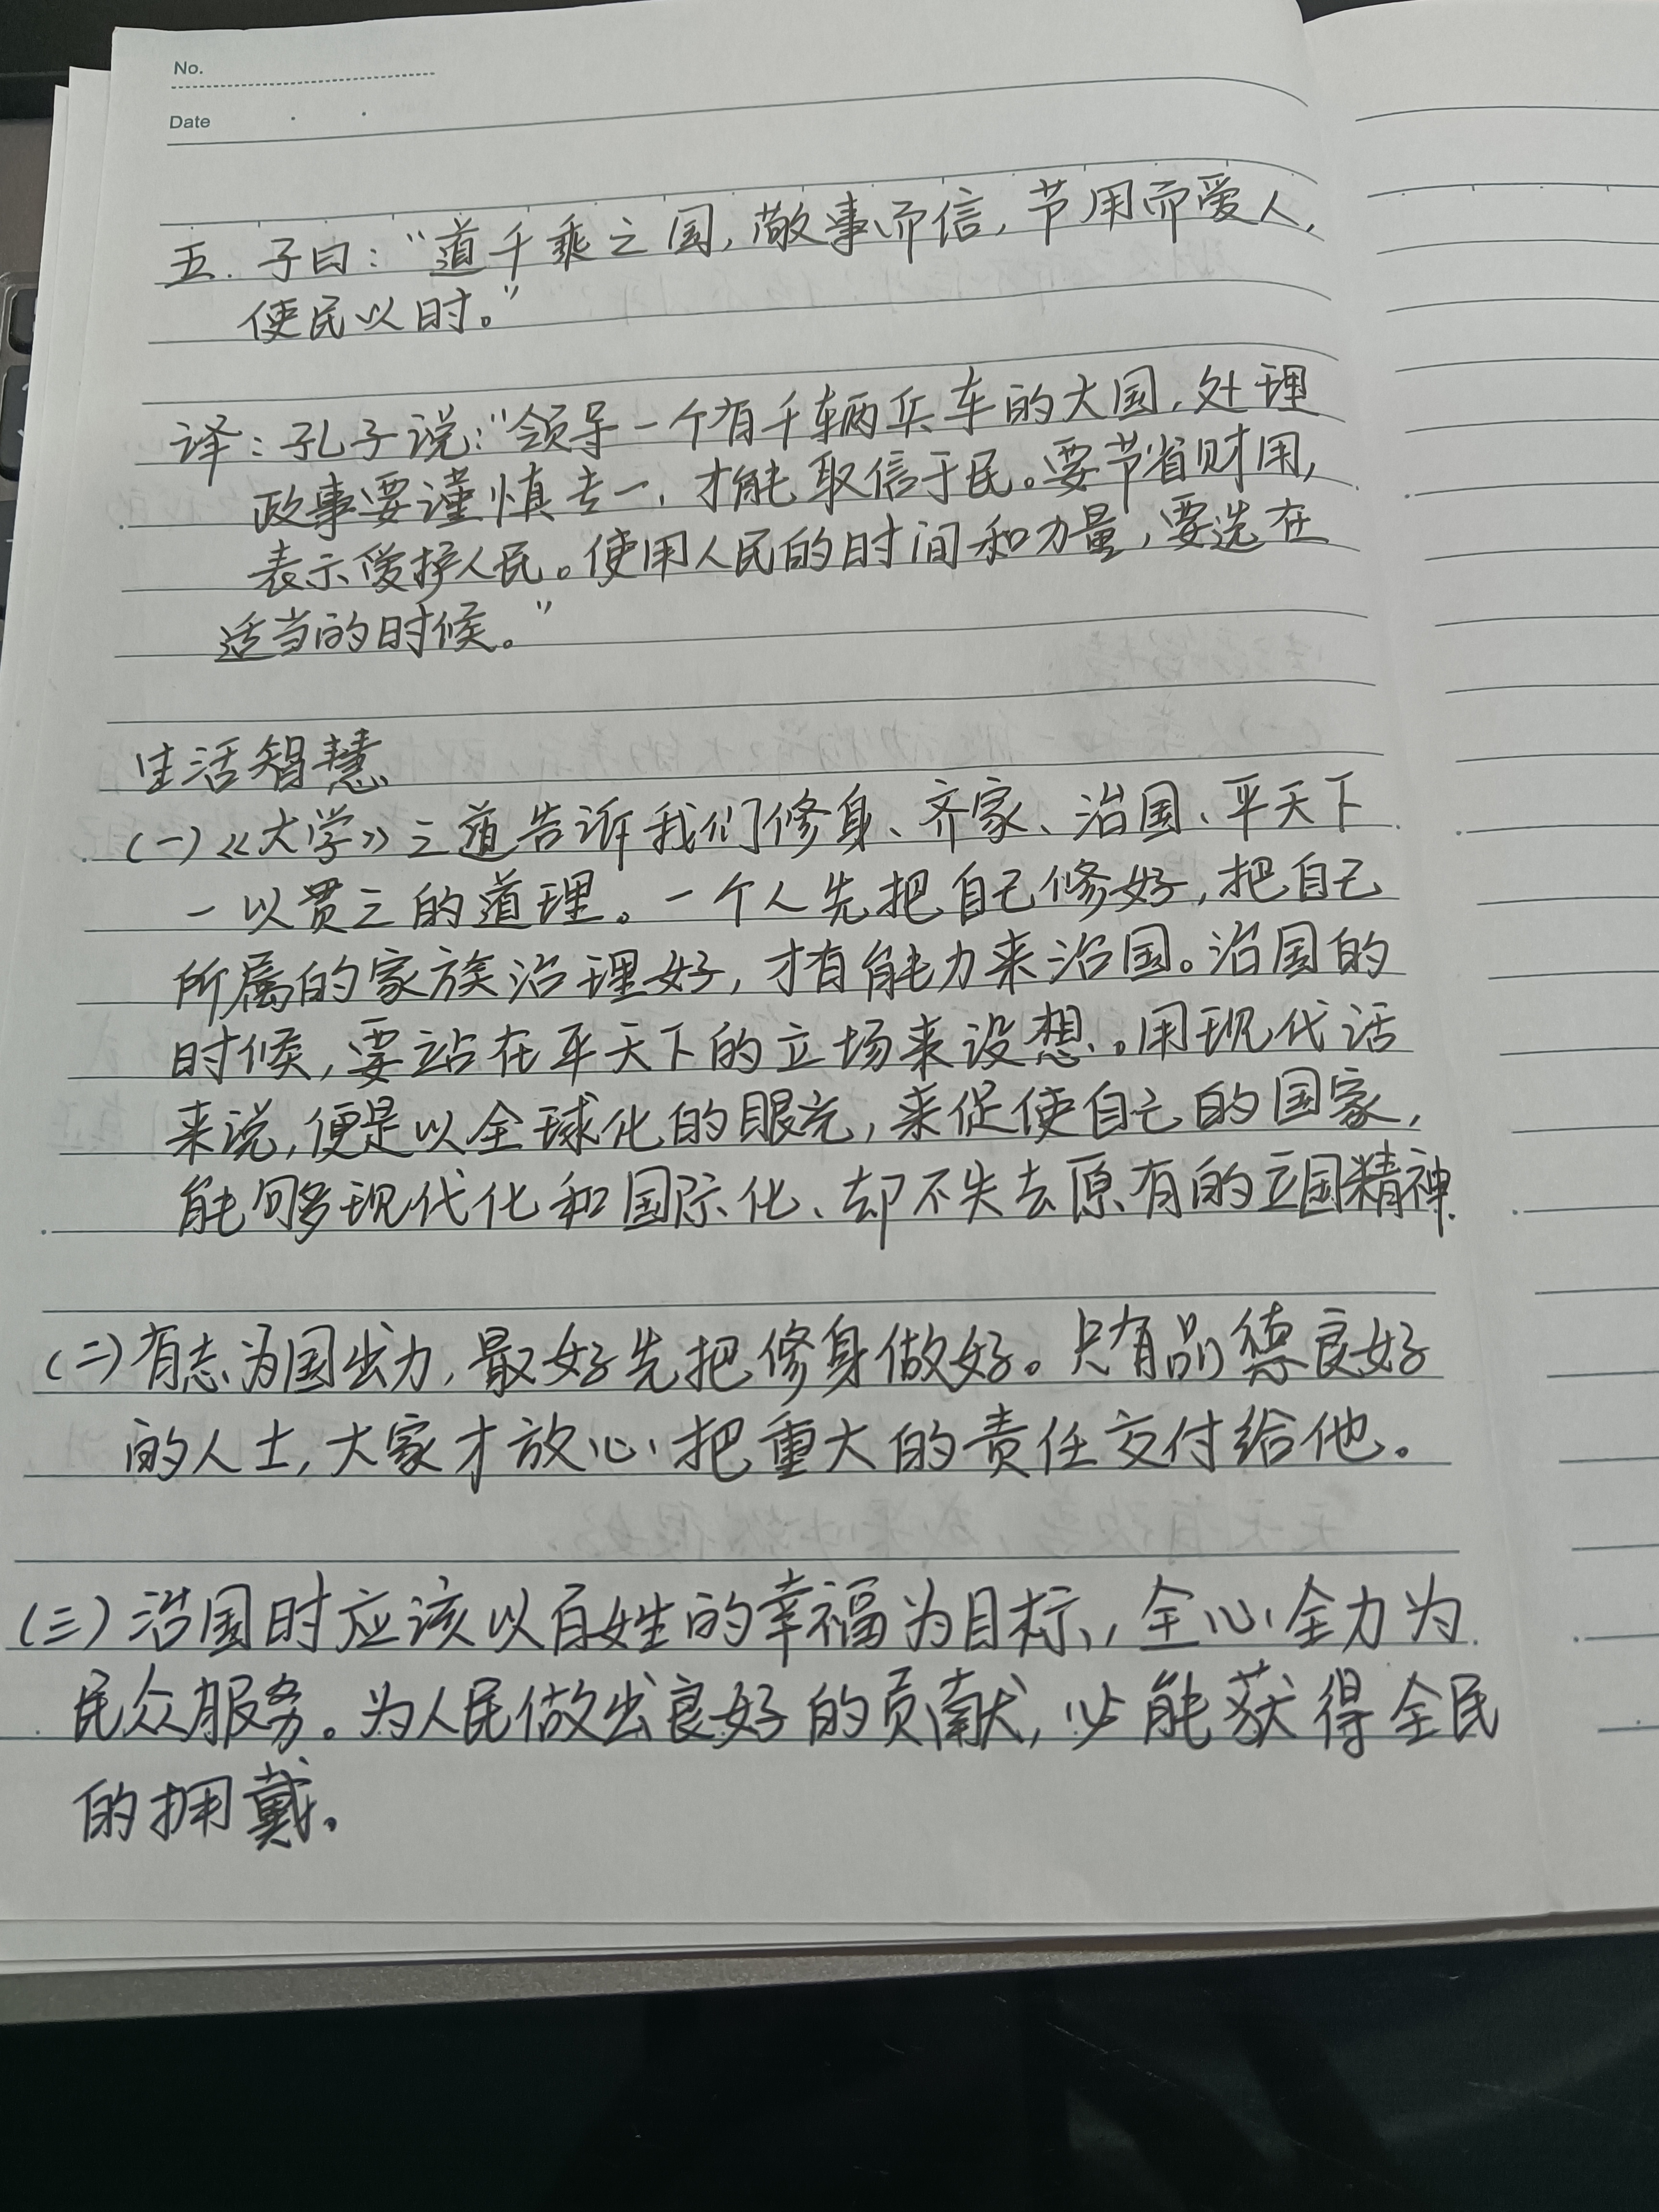 No.
Date
五. 子曰：“道千乘之国，敬事而信，节用而爱人，
使民以时。”
译：孔子说：“领导一个有千辆兵车的大国，处理
政事要谨慎专一，才能取信于民。要节省财用，
表示爱护人民。使用人民的时间和力量，要选在
适当的时候。”
生活智慧
(一)《大学》之道告诉我们修身、齐家、治国、平天下
一以贯之的道理。一个人先把自己修好，把自己
所属的家族治理好，才有能力来治国。治国的
时候，要站在平天下的立场来设想。用现代话
来说，便是以全球化的眼光，来促使自己的国家，
能够现代化和国际化、却不失去原有的立国精神.
(二)有志为国出力，最好先把修身做好。只有品德良好
的人士，大家才放心把重大的责任交付给他。
(三)治国时应该以百姓的幸福为目标，全心全力为
民众服务。为人民做出良好的贡献，必能获得全民
的拥戴.